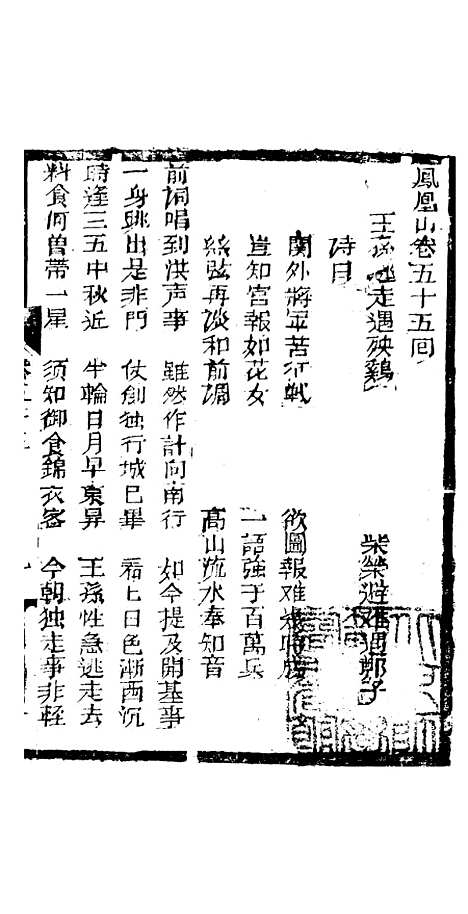 鳳凰山卷五十五囘
王孫逃走遇殃鷄　柴榮避难遇鄭子
诗曰
閫外將軍苦征戰　欲圖報难
豈知宮報如花女　一語強于百萬兵
絲弦再談和前调　髙山流水奉知音
前词唱到洪声事　雖然作計向南行　如今提及開基事
一身跳出是非門　仗劍独行城已畢　看上日色漸西沉
時逢三五中秋近　半輪日月早東昇　王孫性急逃走去
料食何曽带一星　須知御食錦衣客　今朝独走事非輕